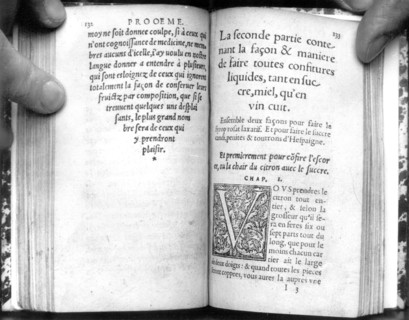 132 PROOEME.
moy ne soit donner coulpe, si à ceux qui
n'ont cognoissance de medicine, ne mem-
bres aucuns d'icelle, i'ay voulu en nostre
langue donner a entendre à plusieurs,
qui sont esloignez de ceux qui ignorent
totalement la façon de conserver leurs
fruictz par composition, que si se
treuvent quelques uns desplai
sants, le plus grand nom
bre sera de ceux qui
y prendront
plaisir.
*
133
La seconde partie conte-
nant la façon & maniere
de faire toutes confitures
liquides, tant en suc-
cre, miel, qu'en
vin cuit.
Ensemble deux façons pour faire le
syrop rosat laxatif. Et pour faire le succre
candi, penites & tourrons d'Hespaigne.
Et premierement pour cõfire l'escor
ce, ou la chair du citron avec le succre.
CHAP. I.
VOUS prendrez le
citron tout en-
tier, & selon la
grosseur qu'il se-
ra en ferez six ou
sept parts tout du
long, que pour le
moins chacun car
tier ait le large
de deux doigts: & quand toutes les pieces
seront coppees, vous aurez la autres vee
I 3